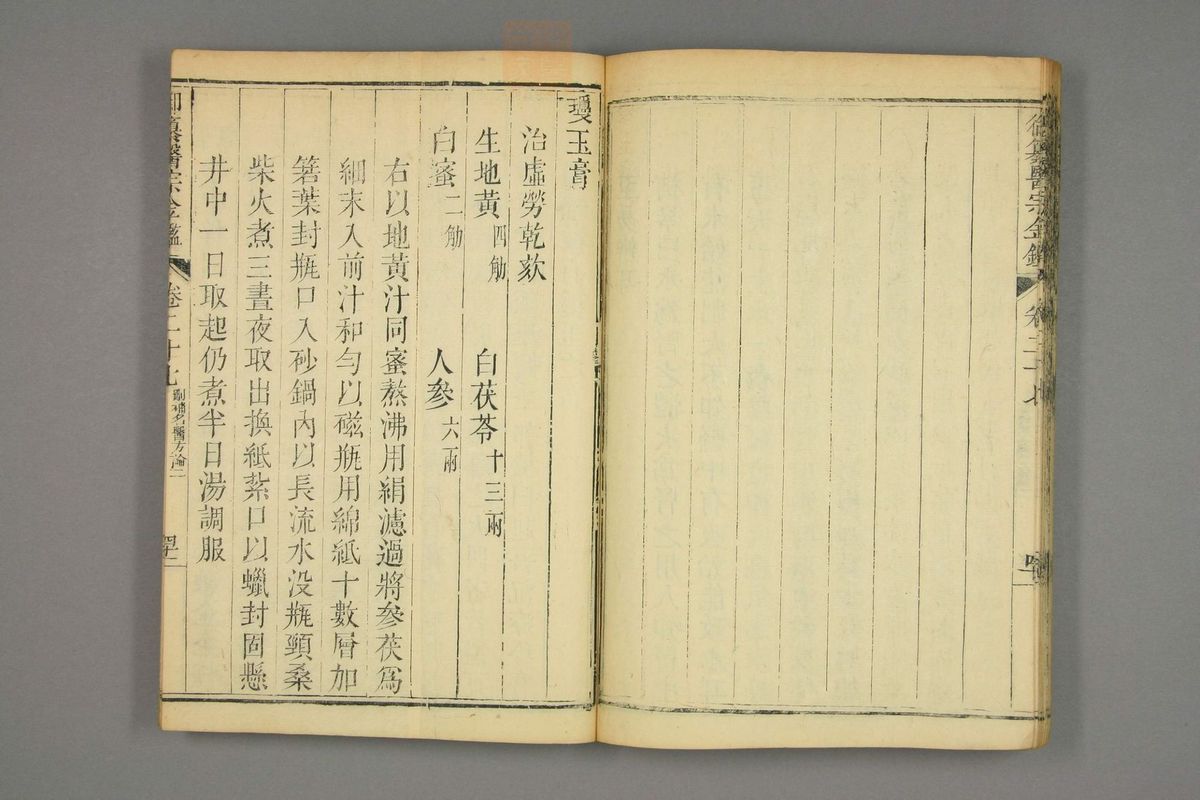 御纂醫宗金鑑 卷二十七
瓊玉膏
治虛勞乾欬
生地黃四觔 白茯苓十三兩
白蜜二觔 人參六兩
右以地黃汁同蜜熬沸用絹濾過將參茯爲
細末入前汁和勻以磁瓶用綿紙十數層加
箬葉封瓶口入砂鍋內以長流水没瓶頸桑
柴火煮三晝夜取出換紙紮口以蠟封固懸
井中一日取起仍煮半日湯調服
御纂醫宗金鑑 卷二十七 刪補名醫方論二